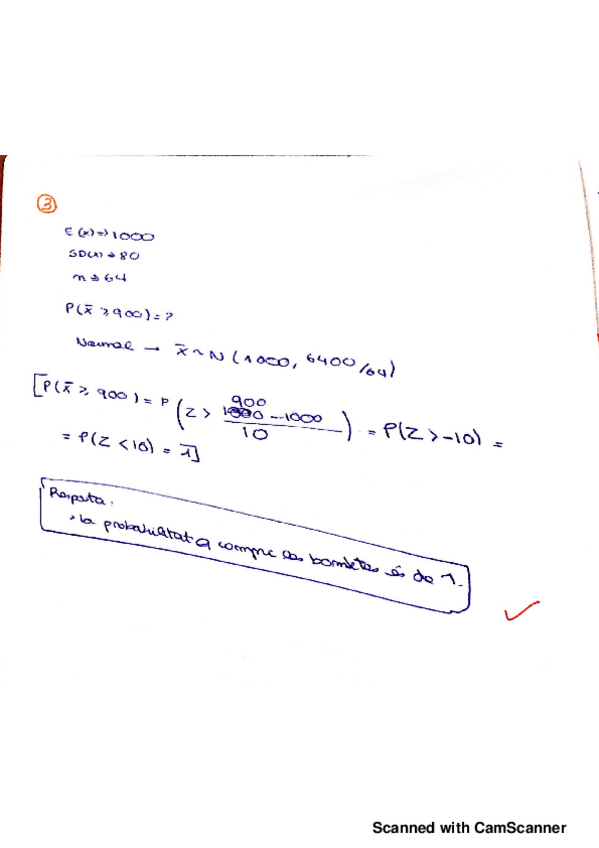 3
E(x)⇒1000
SD(x)⇒80
n⇒64
P(x̄ ⩾ 900) = ?
Normal → x̄ ~ N(1000, 6400/64)
[P(x̄ ⩾ 900) = P(Z > (900 - 1000)/10) = P(Z > -10) =
= P(Z < 10) = 1]
Resposta:
• la probabilitat q compre les bombetes és de 1.
Scanned with CamScanner